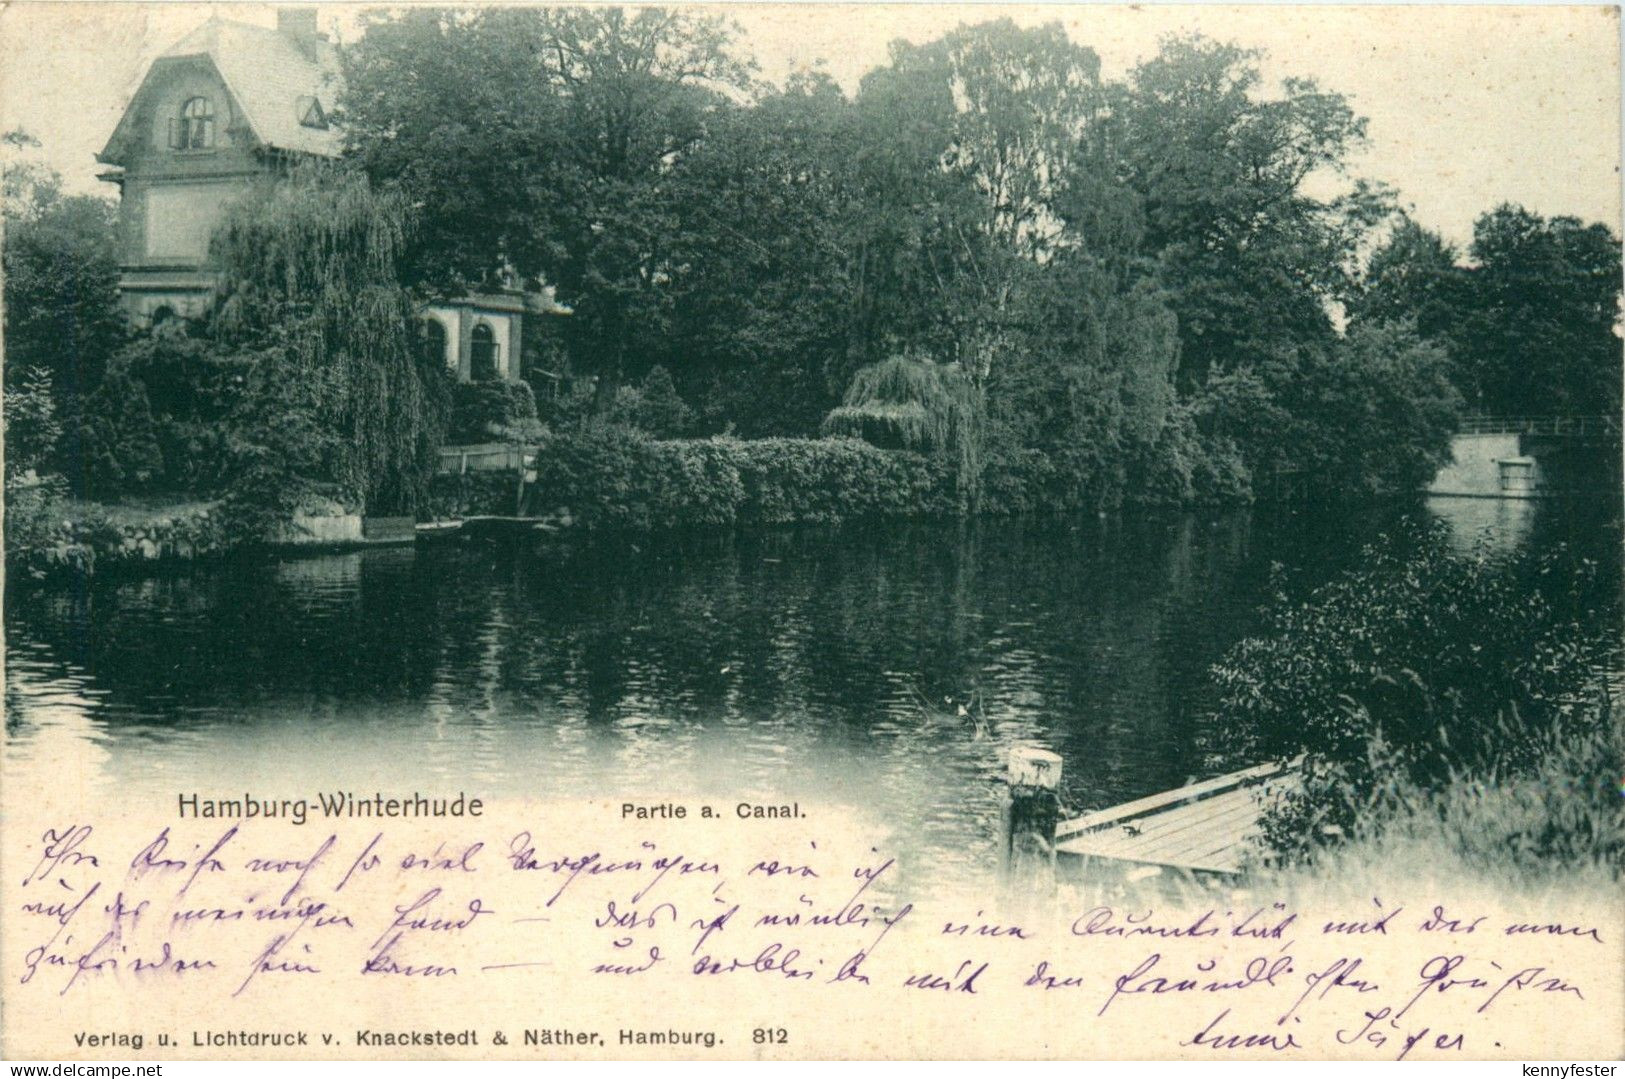 Hamburg-Winterhude Partie a. Canal.
Ihre Reise noch so viel Vergnügen, wie ich
auf der meinigen fand — das ist nämlich eine Quantität, mit der man
zufrieden sein kann — und verbleibe mit den freundlichsten Grüßen
Annie Jäger.
Verlag u. Lichtdruck v. Knackstedt & Näther, Hamburg. 812
Delcampe.net
kennyfester